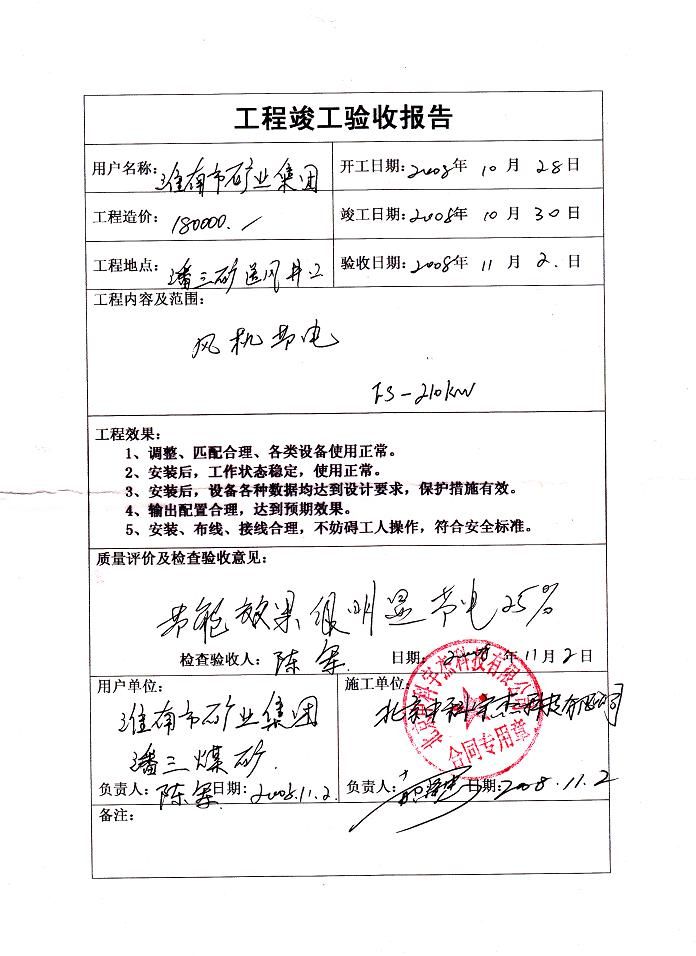 工程竣工验收报告
用户名称: 淮南市矿业集团
开工日期: 2008年 10 月 28 日
工程造价: 180000.
竣工日期: 2008年 10 月 30 日
工程地点: 潘三矿送风井口
验收日期: 2008年 11 月 2. 日
工程内容及范围:
风机节电
FS-210KW
工程效果:
1、调整、匹配合理、各类设备使用正常。
2、安装后，工作状态稳定，使用正常。
3、安装后，设备各种数据均达到设计要求，保护措施有效。
4、输出配置合理，达到预期效果。
5、安装、布线、接线合理，不妨碍工人操作，符合安全标准。
质量评价及检查验收意见:
节能效果很明显节电25%
检查验收人: 陈军 日期: 2008 年 11 月 2 日
用户单位:
淮南市矿业集团
潘三煤矿.
负责人: 陈军 日期: 2008.11.2.
施工单位
北京中科宇杰科技有限公司
合同专用章
负责人: 日期: 2008.11.2
备注: